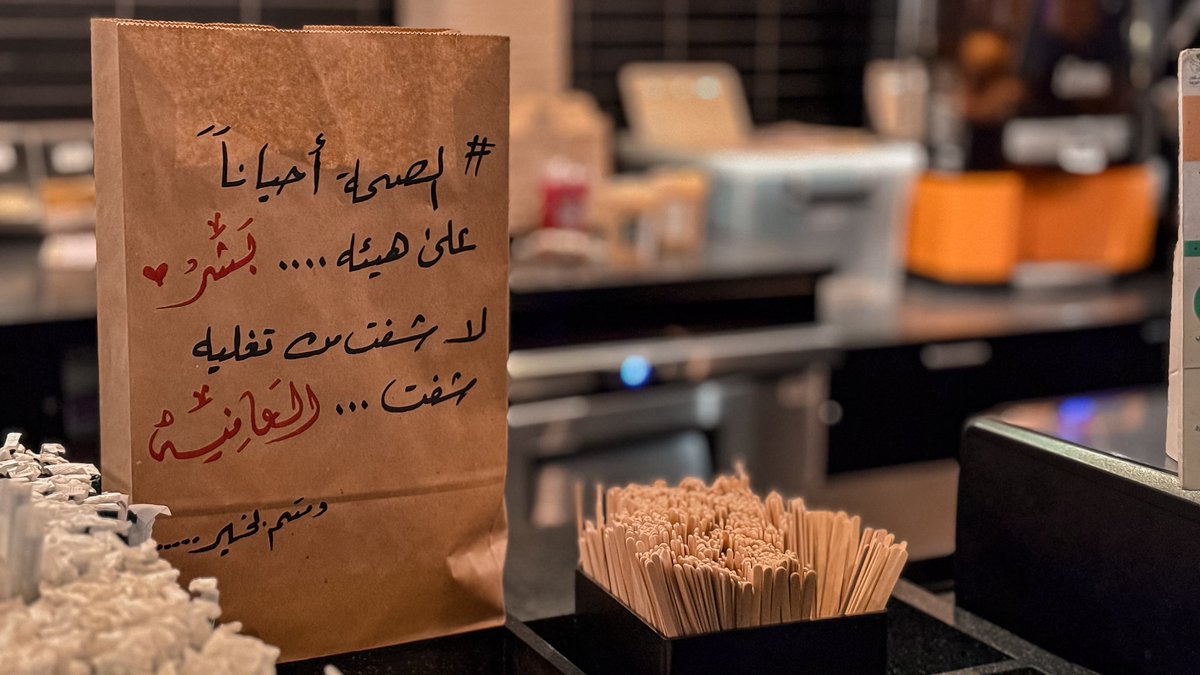 # الصحة أحياناً
على هيئه .... بَشَرْ
لا شفت من تغليه
شفت ... العَافِيَهْ
ودمتم بخير .....